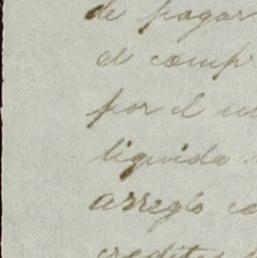 de pagar
el comp
por el
liquida
arreglo co
credit